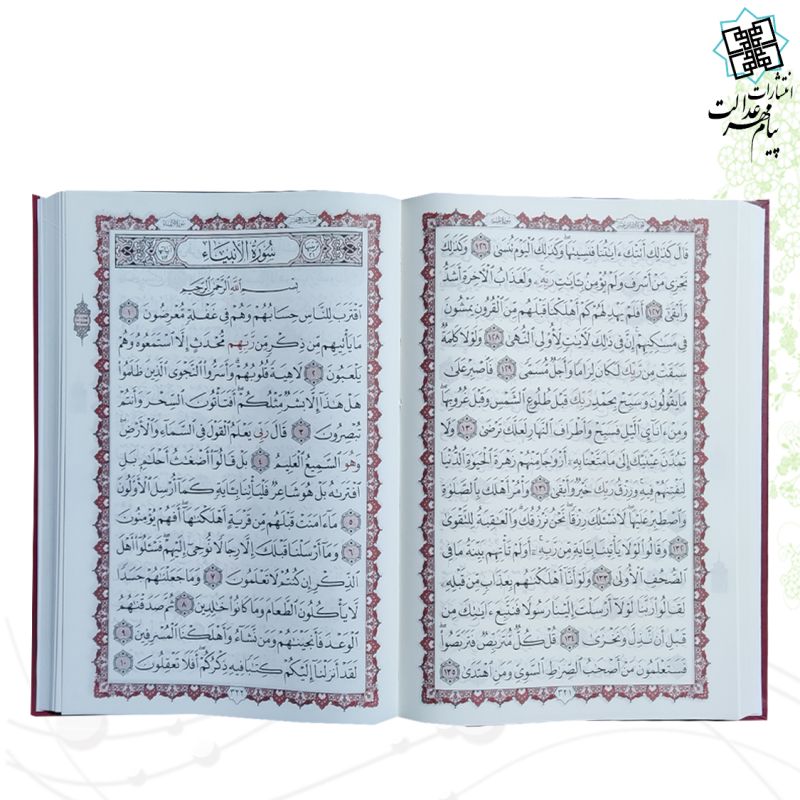 انتشارات
پیام مهر عدالت
قَالَ كَذَٰلِكَ أَتَتْكَ ءَايَٰتُنَا فَنَسِيتَهَا ۖ وَكَذَٰلِكَ ٱلْيَوْمَ تُنسَىٰ ١٢٦ وَكَذَٰلِكَ
نَجْزِى مَنْ أَسْرَفَ وَلَمْ يُؤْمِنۢ بِـَٔايَٰتِ رَبِّهِۦ ۚ وَلَعَذَابُ ٱلْءَاخِرَةِ أَشَدُّ
وَأَبْقَىٰٓ ١٢٧ أَفَلَمْ يَهْدِ لَهُمْ كَمْ أَهْلَكْنَا قَبْلَهُم مِّنَ ٱلْقُرُونِ يَمْشُونَ
فِى مَسَٰكِنِهِمْ ۗ إِنَّ فِى ذَٰلِكَ لَءَايَٰتٍ لِّأُو۟لِى ٱلنُّهَىٰ ١٢٨ وَلَوْلَا كَلِمَةٌ
سَبَقَتْ مِن رَّبِّكَ لَكَانَ لِزَامًا وَأَجَلٌ مُّسَمًّى ١٢٩ فَٱصْبِرْ عَلَىٰ
مَا يَقُولُونَ وَسَبِّحْ بِحَمْدِ رَبِّكَ قَبْلَ طُلُوعِ ٱلشَّمْسِ وَقَبْلَ غُرُوبِهَا ۖ
وَمِنْ ءَانَآئِ ٱلَّيْلِ فَسَبِّحْ وَأَطْرَافَ ٱلنَّهَارِ لَعَلَّكَ تَرْضَىٰ ١٣٠ وَلَا
تَمُدَّنَّ عَيْنَيْكَ إِلَىٰ مَا مَتَّعْنَا بِهِۦٓ أَزْوَٰجًا مِّنْهُمْ زَهْرَةَ ٱلْحَيَوٰةِ ٱلدُّنْيَا
لِنَفْتِنَهُمْ فِيهِ ۚ وَرِزْقُ رَبِّكَ خَيْرٌ وَأَبْقَىٰ ١٣١ وَأْمُرْ أَهْلَكَ بِٱلصَّلَوٰةِ
وَٱصْطَبِرْ عَلَيْهَا ۖ لَا نَسْـَٔلُكَ رِزْقًا ۖ نَّحْنُ نَرْزُقُكَ ۗ وَٱلْعَٰقِبَةُ لِلتَّقْوَىٰ
١٣٢ وَقَالُوا۟ لَوْلَا يَأْتِينَا بِـَٔايَةٍ مِّن رَّبِّهِۦٓ ۚ أَوَلَمْ تَأْتِهِم بَيِّنَةُ مَا فِى
ٱلصُّحُفِ ٱلْأُولَىٰ ١٣٣ وَلَوْ أَنَّآ أَهْلَكْنَٰهُم بِعَذَابٍ مِّن قَبْلِهِۦ
لَقَالُوا۟ رَبَّنَا لَوْلَآ أَرْسَلْتَ إِلَيْنَا رَسُولًا فَنَتَّبِعَ ءَايَٰتِكَ مِن
قَبْلِ أَن نَّذِلَّ وَنَخْزَىٰ ١٣٤ قُلْ كُلٌّ مُّتَرَبِّصٌ فَتَرَبَّصُوا۟ ۖ
فَسَتَعْلَمُونَ مَنْ أَصْحَٰبُ ٱلصِّرَٰطِ ٱلسَّوِىِّ وَمَنِ ٱهْتَدَىٰ ١٣٥
٣٢١
سُورَةُ الأَنبِيَاءِ
بِسْمِ ٱللَّهِ ٱلرَّحْمَٰنِ ٱلرَّحِيمِ
ٱقْتَرَبَ لِلنَّاسِ حِسَابُهُمْ وَهُمْ فِى غَفْلَةٍ مُّعْرِضُونَ ١
مَا يَأْتِيهِم مِّن ذِكْرٍ مِّن رَّبِّهِم مُّحْدَثٍ إِلَّا ٱسْتَمَعُوهُ وَهُمْ
يَلْعَبُونَ ٢ لَاهِيَةً قُلُوبُهُمْ ۗ وَأَسَرُّوا۟ ٱلنَّجْوَى ٱلَّذِينَ ظَلَمُوا۟
هَلْ هَٰذَآ إِلَّا بَشَرٌ مِّثْلُكُمْ ۖ أَفَتَأْتُونَ ٱلسِّحْرَ وَأَنتُمْ
تُبْصِرُونَ ٣ قَالَ رَبِّى يَعْلَمُ ٱلْقَوْلَ فِى ٱلسَّمَآءِ وَٱلْأَرْضِ ۖ
وَهُوَ ٱلسَّمِيعُ ٱلْعَلِيمُ ٤ بَلْ قَالُوٓا۟ أَضْغَٰثُ أَحْلَٰمٍۭ بَلِ
ٱفْتَرَىٰهُ بَلْ هُوَ شَاعِرٌ فَلْيَأْتِنَا بِـَٔايَةٍ كَمَآ أُرْسِلَ ٱلْأَوَّلُونَ
٥ مَآ ءَامَنَتْ قَبْلَهُم مِّن قَرْيَةٍ أَهْلَكْنَٰهَآ ۖ أَفَهُمْ يُؤْمِنُونَ
٦ وَمَآ أَرْسَلْنَا قَبْلَكَ إِلَّا رِجَالًا نُّوحِىٓ إِلَيْهِمْ ۖ فَسْـَٔلُوٓا۟ أَهْلَ
ٱلذِّكْرِ إِن كُنتُمْ لَا تَعْلَمُونَ ٧ وَمَا جَعَلْنَٰهُمْ جَسَدًا
لَّا يَأْكُلُونَ ٱلطَّعَامَ وَمَا كَانُوا۟ خَٰلِدِينَ ٨ ثُمَّ صَدَقْنَٰهُمُ
ٱلْوَعْدَ فَأَنجَيْنَٰهُمْ وَمَن نَّشَآءُ وَأَهْلَكْنَا ٱلْمُسْرِفِينَ ٩
لَقَدْ أَنزَلْنَآ إِلَيْكُمْ كِتَٰبًا فِيهِ ذِكْرُكُمْ ۖ أَفَلَا تَعْقِلُونَ ١٠
٣٢٢